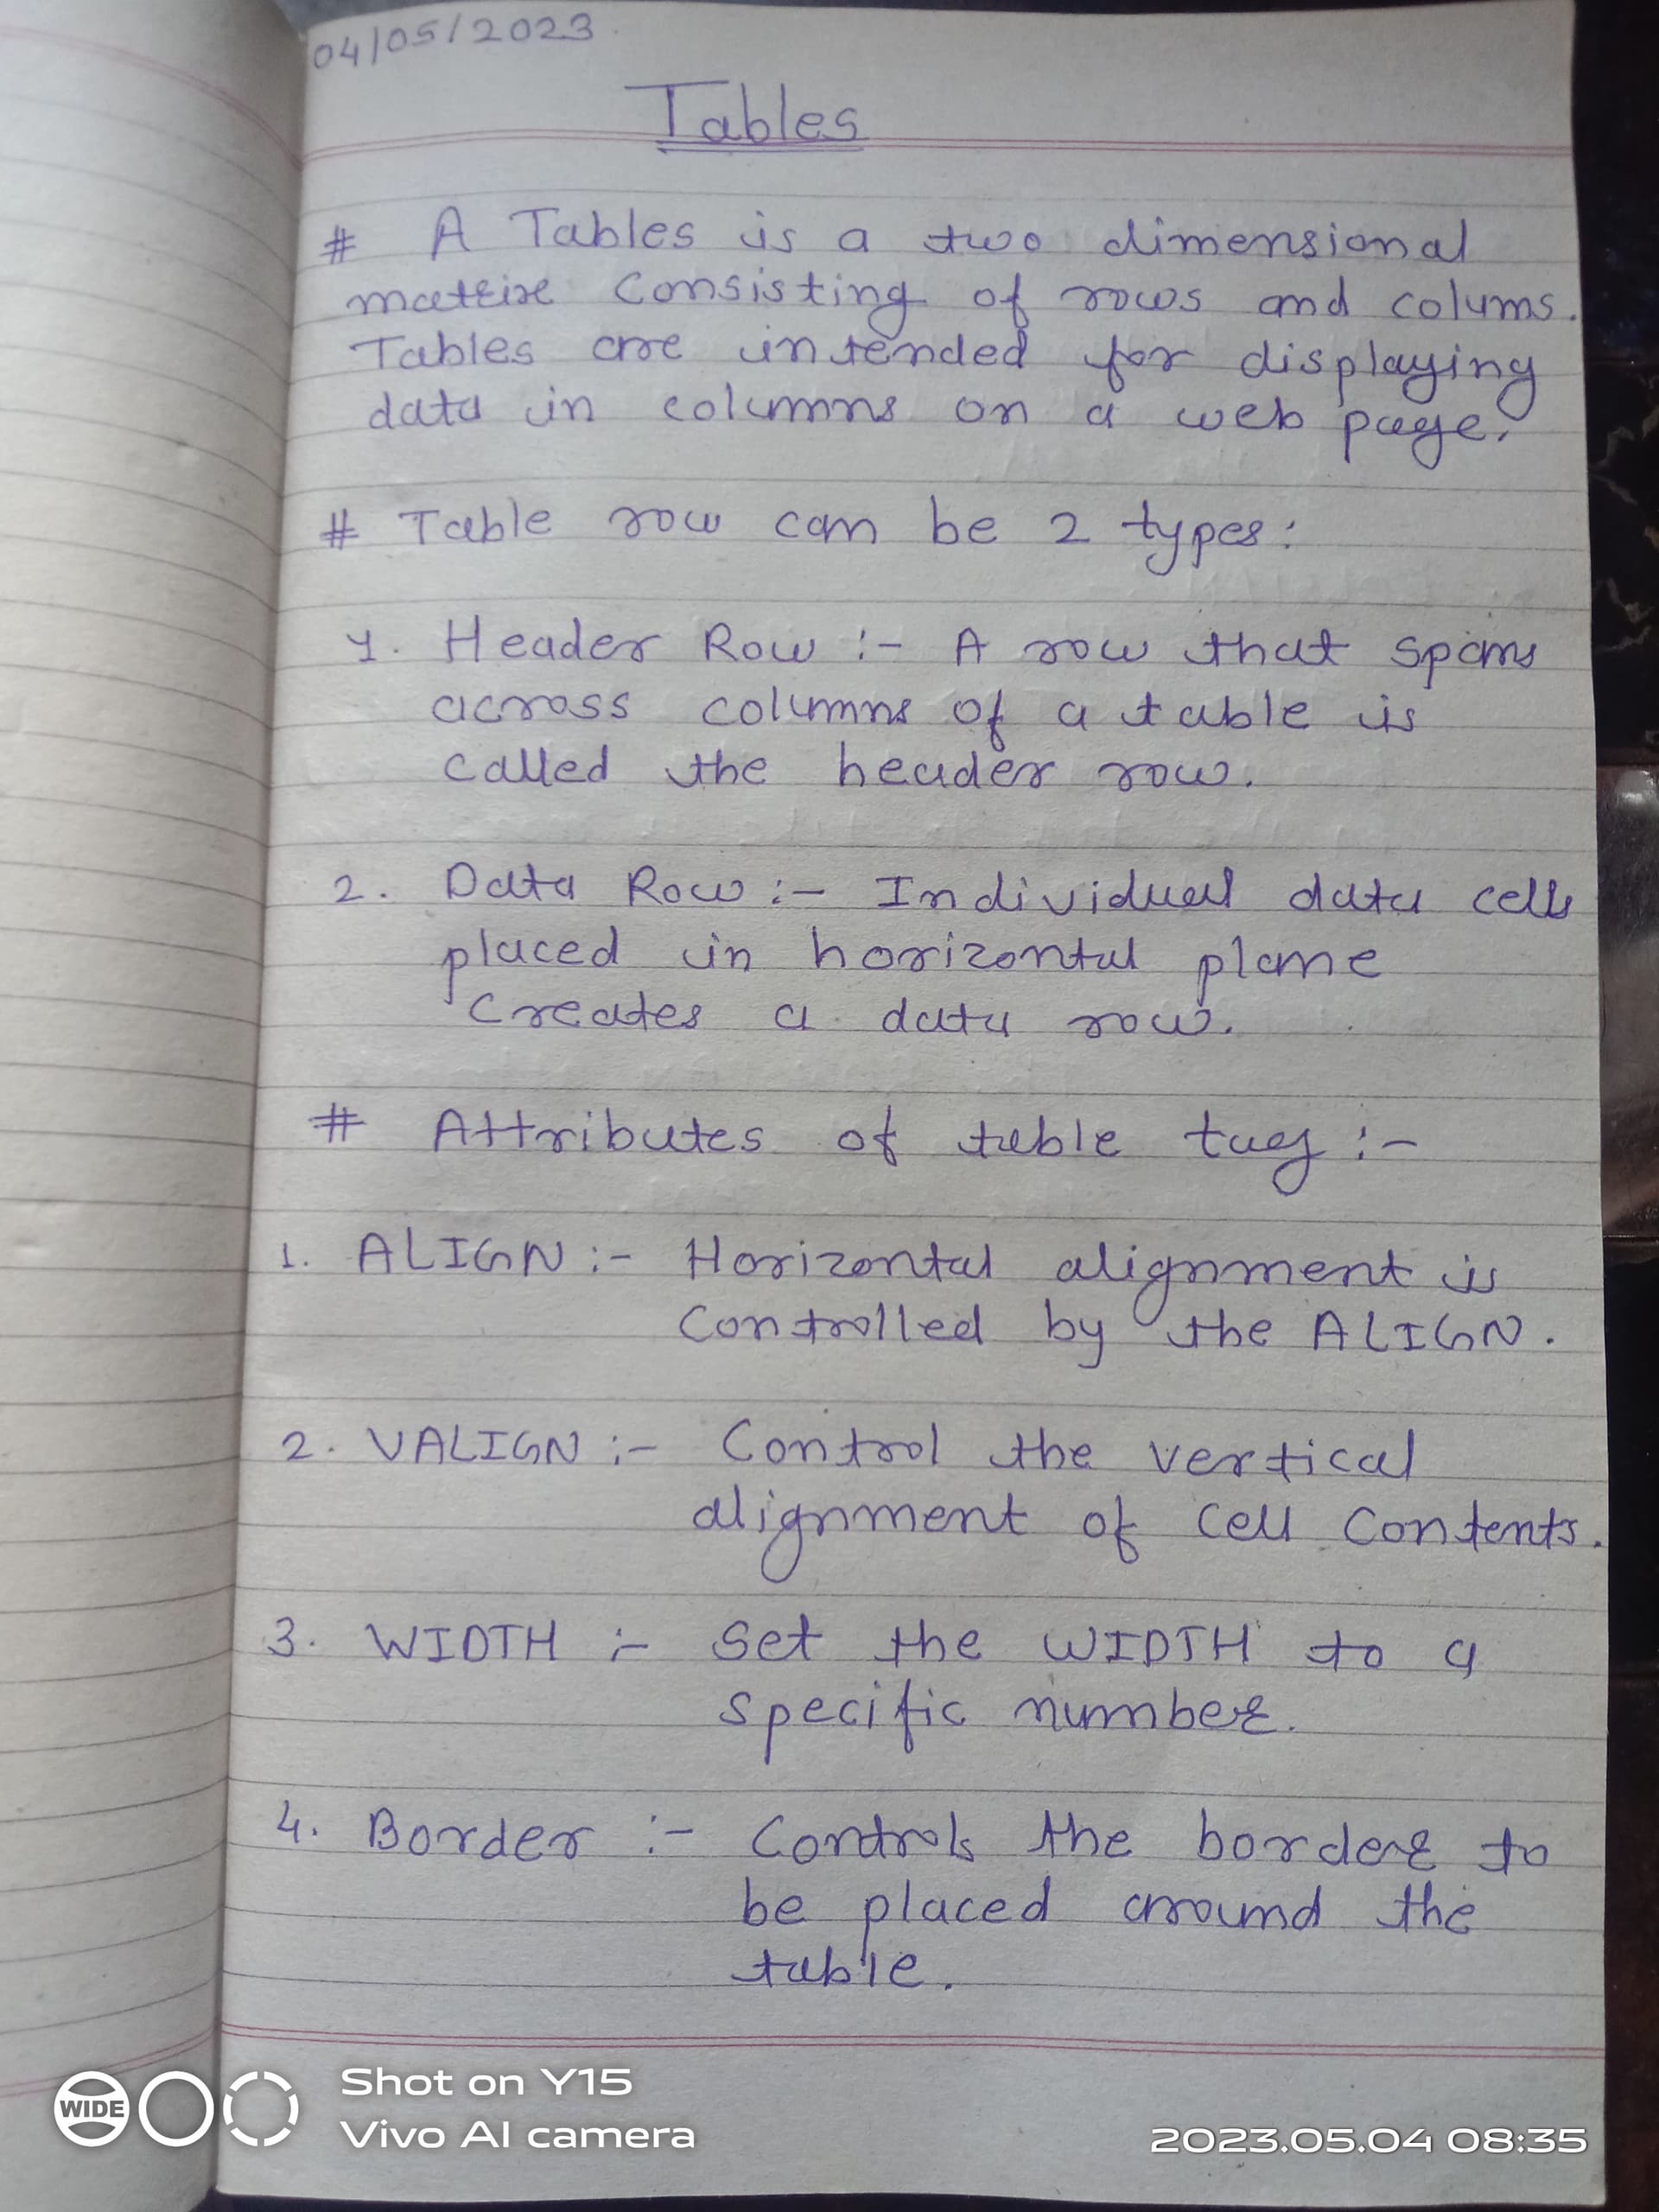 04/05/2023
Tables
# A Tables is a two dimensional
matrix Consisting of rows and colums.
Tables are intended for displaying
data in columns on a web page.
# Table row can be 2 types:
1. Header Row :- A row that spans
across columns of a table is
called the header row.
2. Data Row :- Individual data cells
placed in horizontal plane
Creates a data row.
# Attributes of table tag :-
1. ALIGN :- Horizontal alignment is
Controlled by the ALIGN.
2. VALIGN :- Control the vertical
alignment of Cell Contents.
3. WIDTH :- Set the WIDTH to a
specific number.
4. Border :- Controls the border to
be placed around the
table.
WIDE
Shot on Y15
Vivo AI camera
2023.05.04 08:35